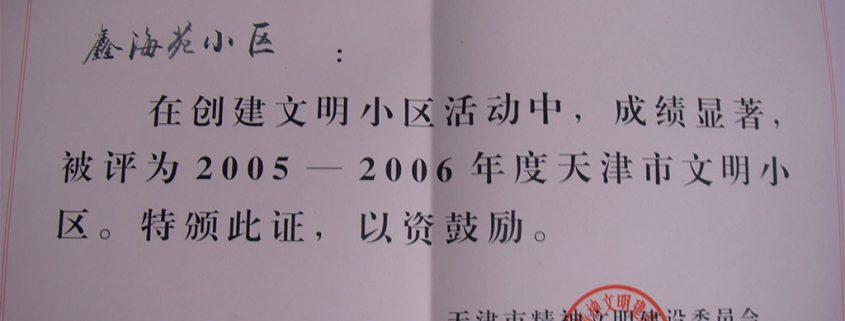 鑫海苑小区:
在创建文明小区活动中,成绩显著,
被评为2005—2006年度天津市文明小
区。特颁此证,以资鼓励。
天津市精神文明建设委员会
神文明建